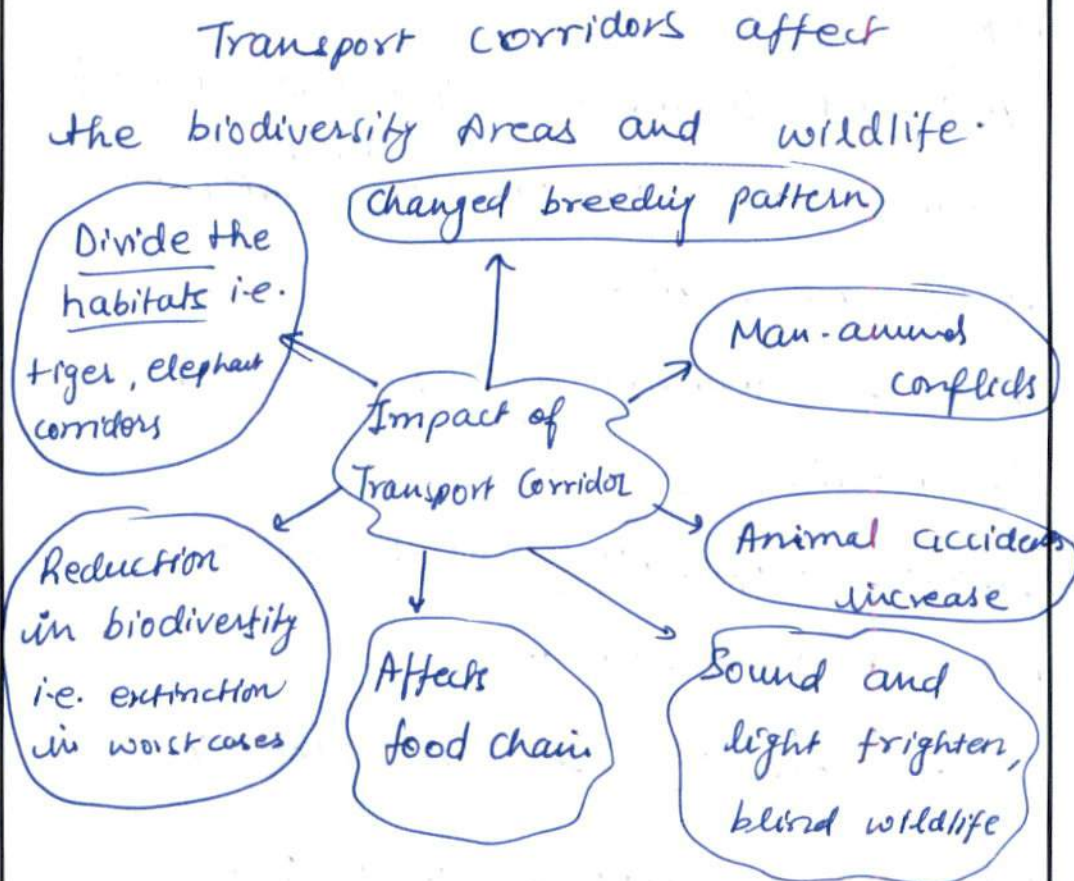 Transport corridors affect
the biodiversity Areas and wildlife.
Changed breeding pattern
Divide the
habitats i.e.
tiger, elephant
corridors
Man-animal
conflicts
Impact of
Transport Corridor
Animal accidents
increase
Reduction
in biodiversity
i.e. extinction
in worst cases
Affects
food chain.
Sound and
light frighten,
blind wildlife